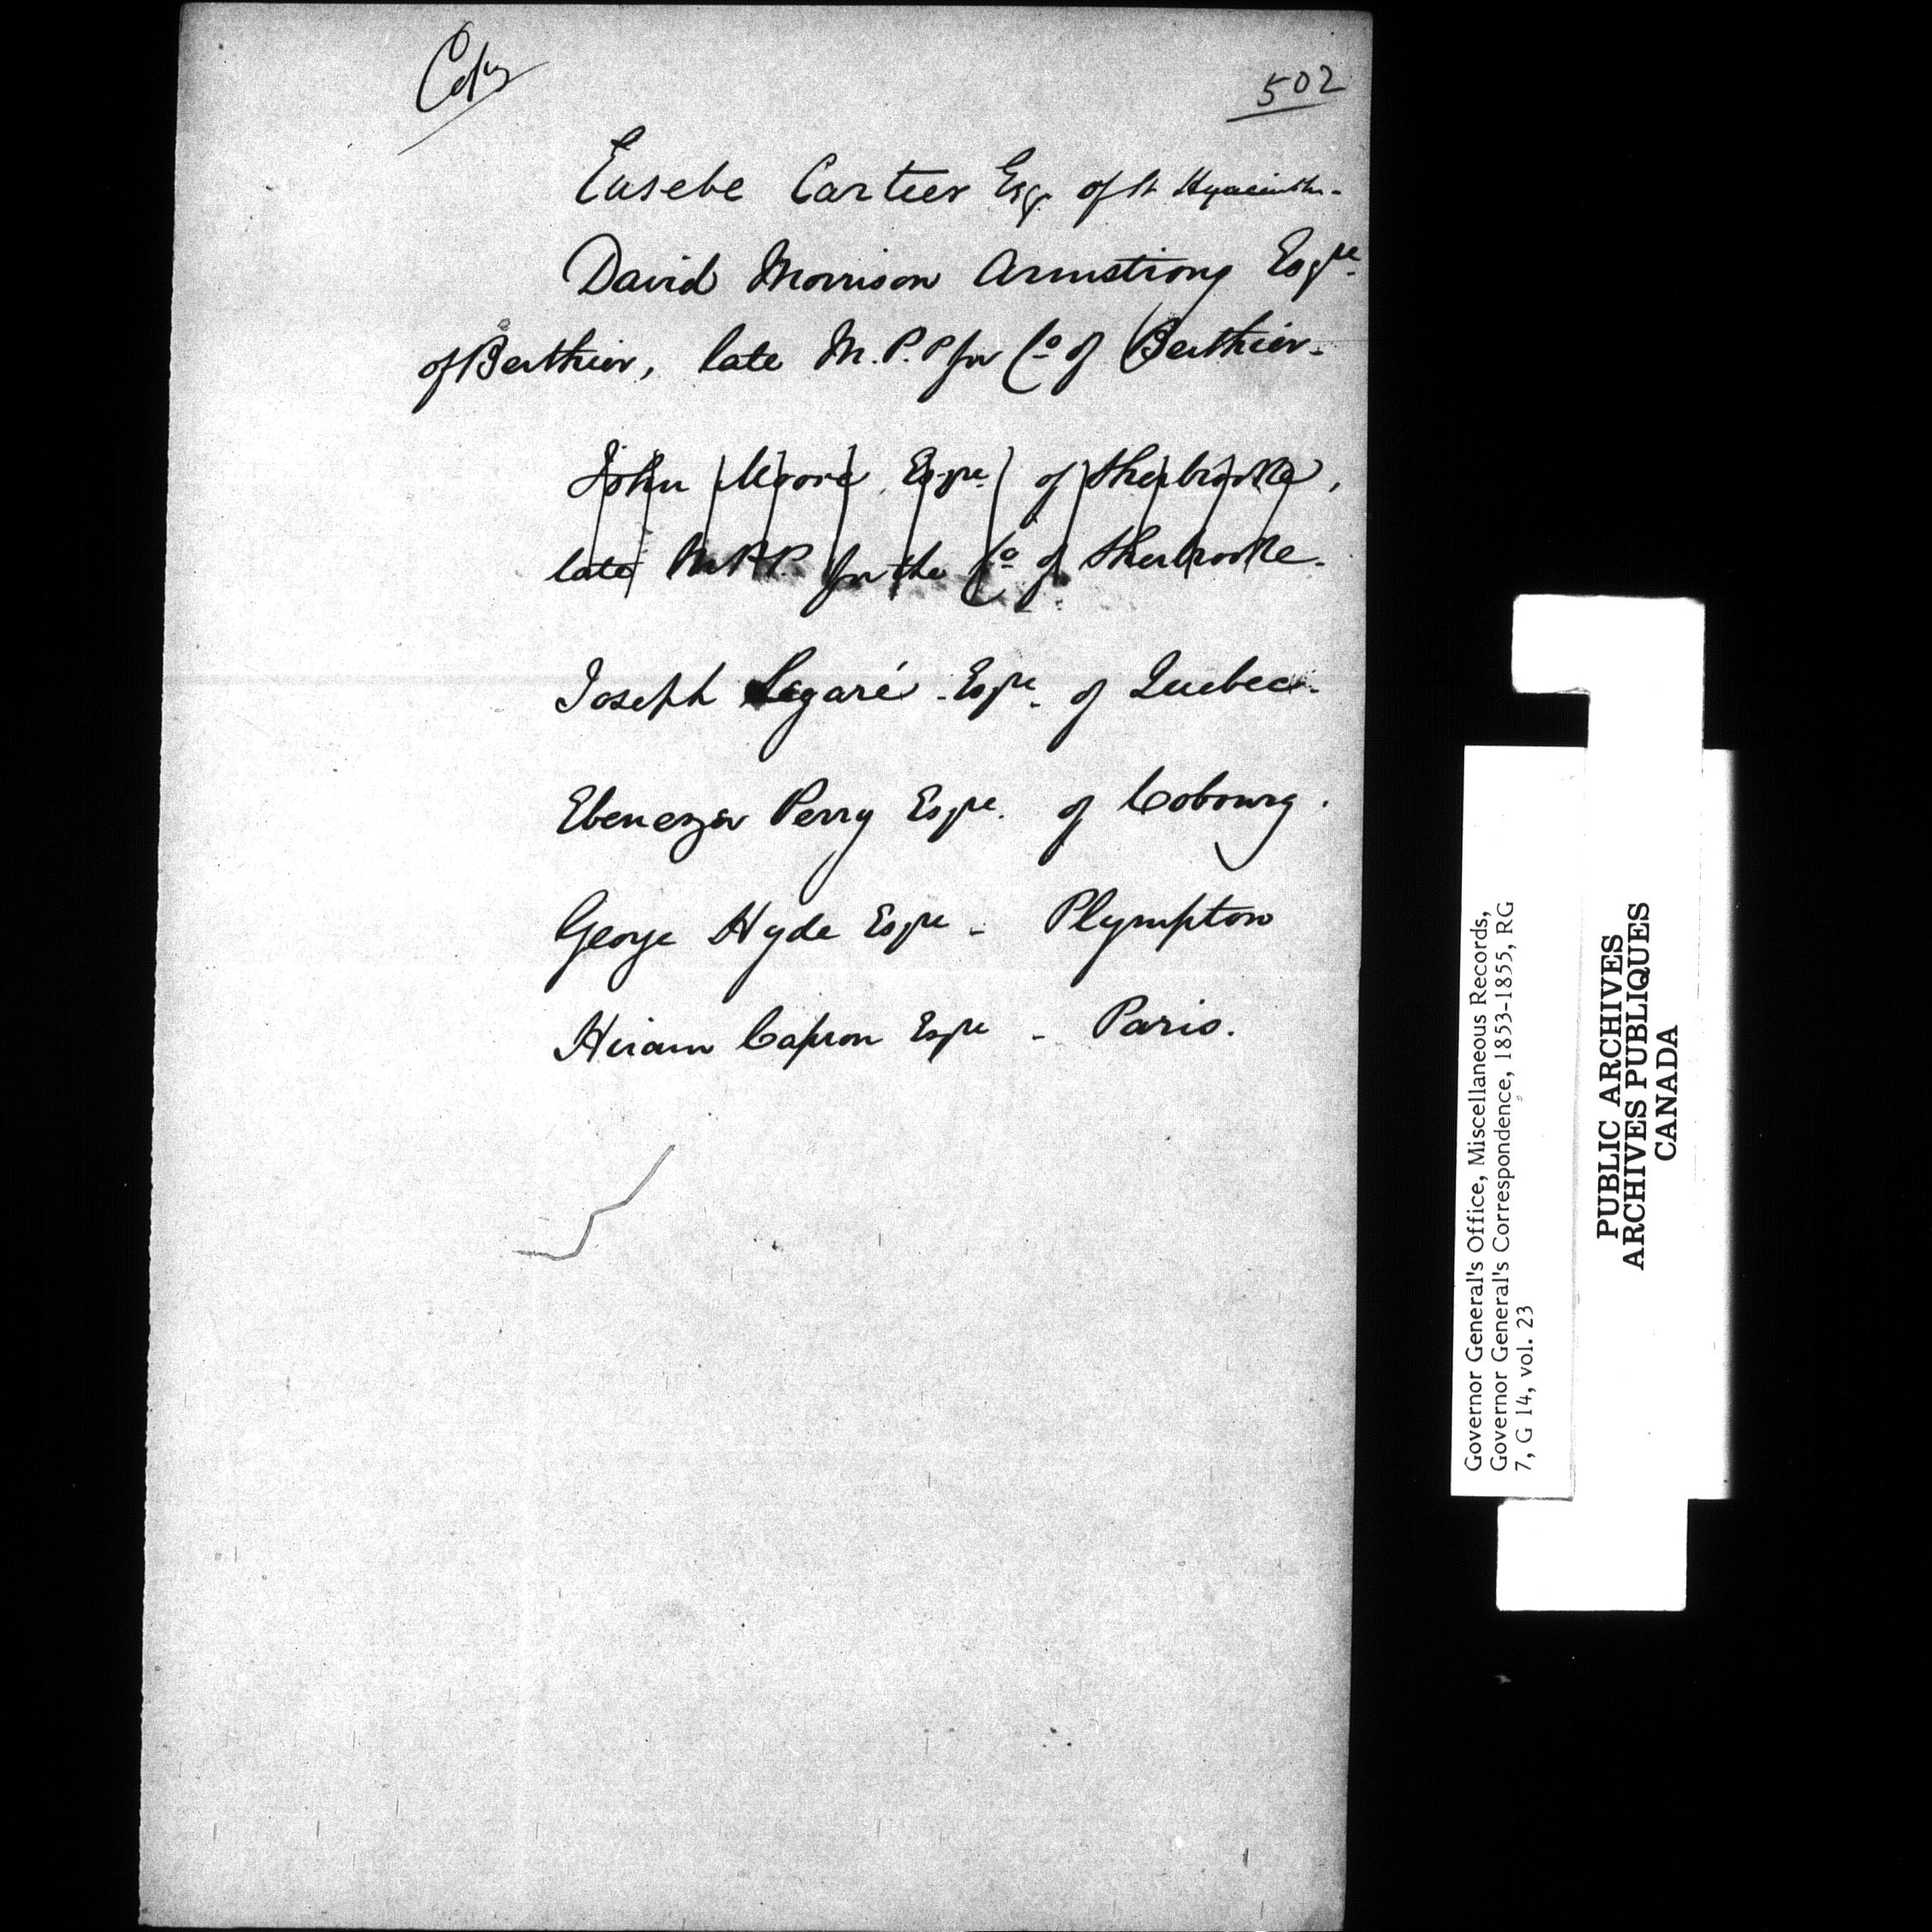 Copy
502
Eusebe Cartier Esq. of St Hyacinthe.
David Morrison Armstrong Esqre.
of Berthier, late M.P.P for Co of Berthier.
John Moore Esqre. of Sherbrooke,
late M.P.P. for the Co of Sherbrooke.
Joseph Legaré Esqre. of Quebec.
Ebenezer Perry Esqre. of Cobourg.
George Hyde Esqre - Plympton
Hiram Capron Esqre - Paris.
Governor General's Office, Miscellaneous Records,
Governor General's Correspondence, 1853-1855, RG
7, G 14, vol. 23
PUBLIC ARCHIVES
ARCHIVES PUBLIQUES
CANADA